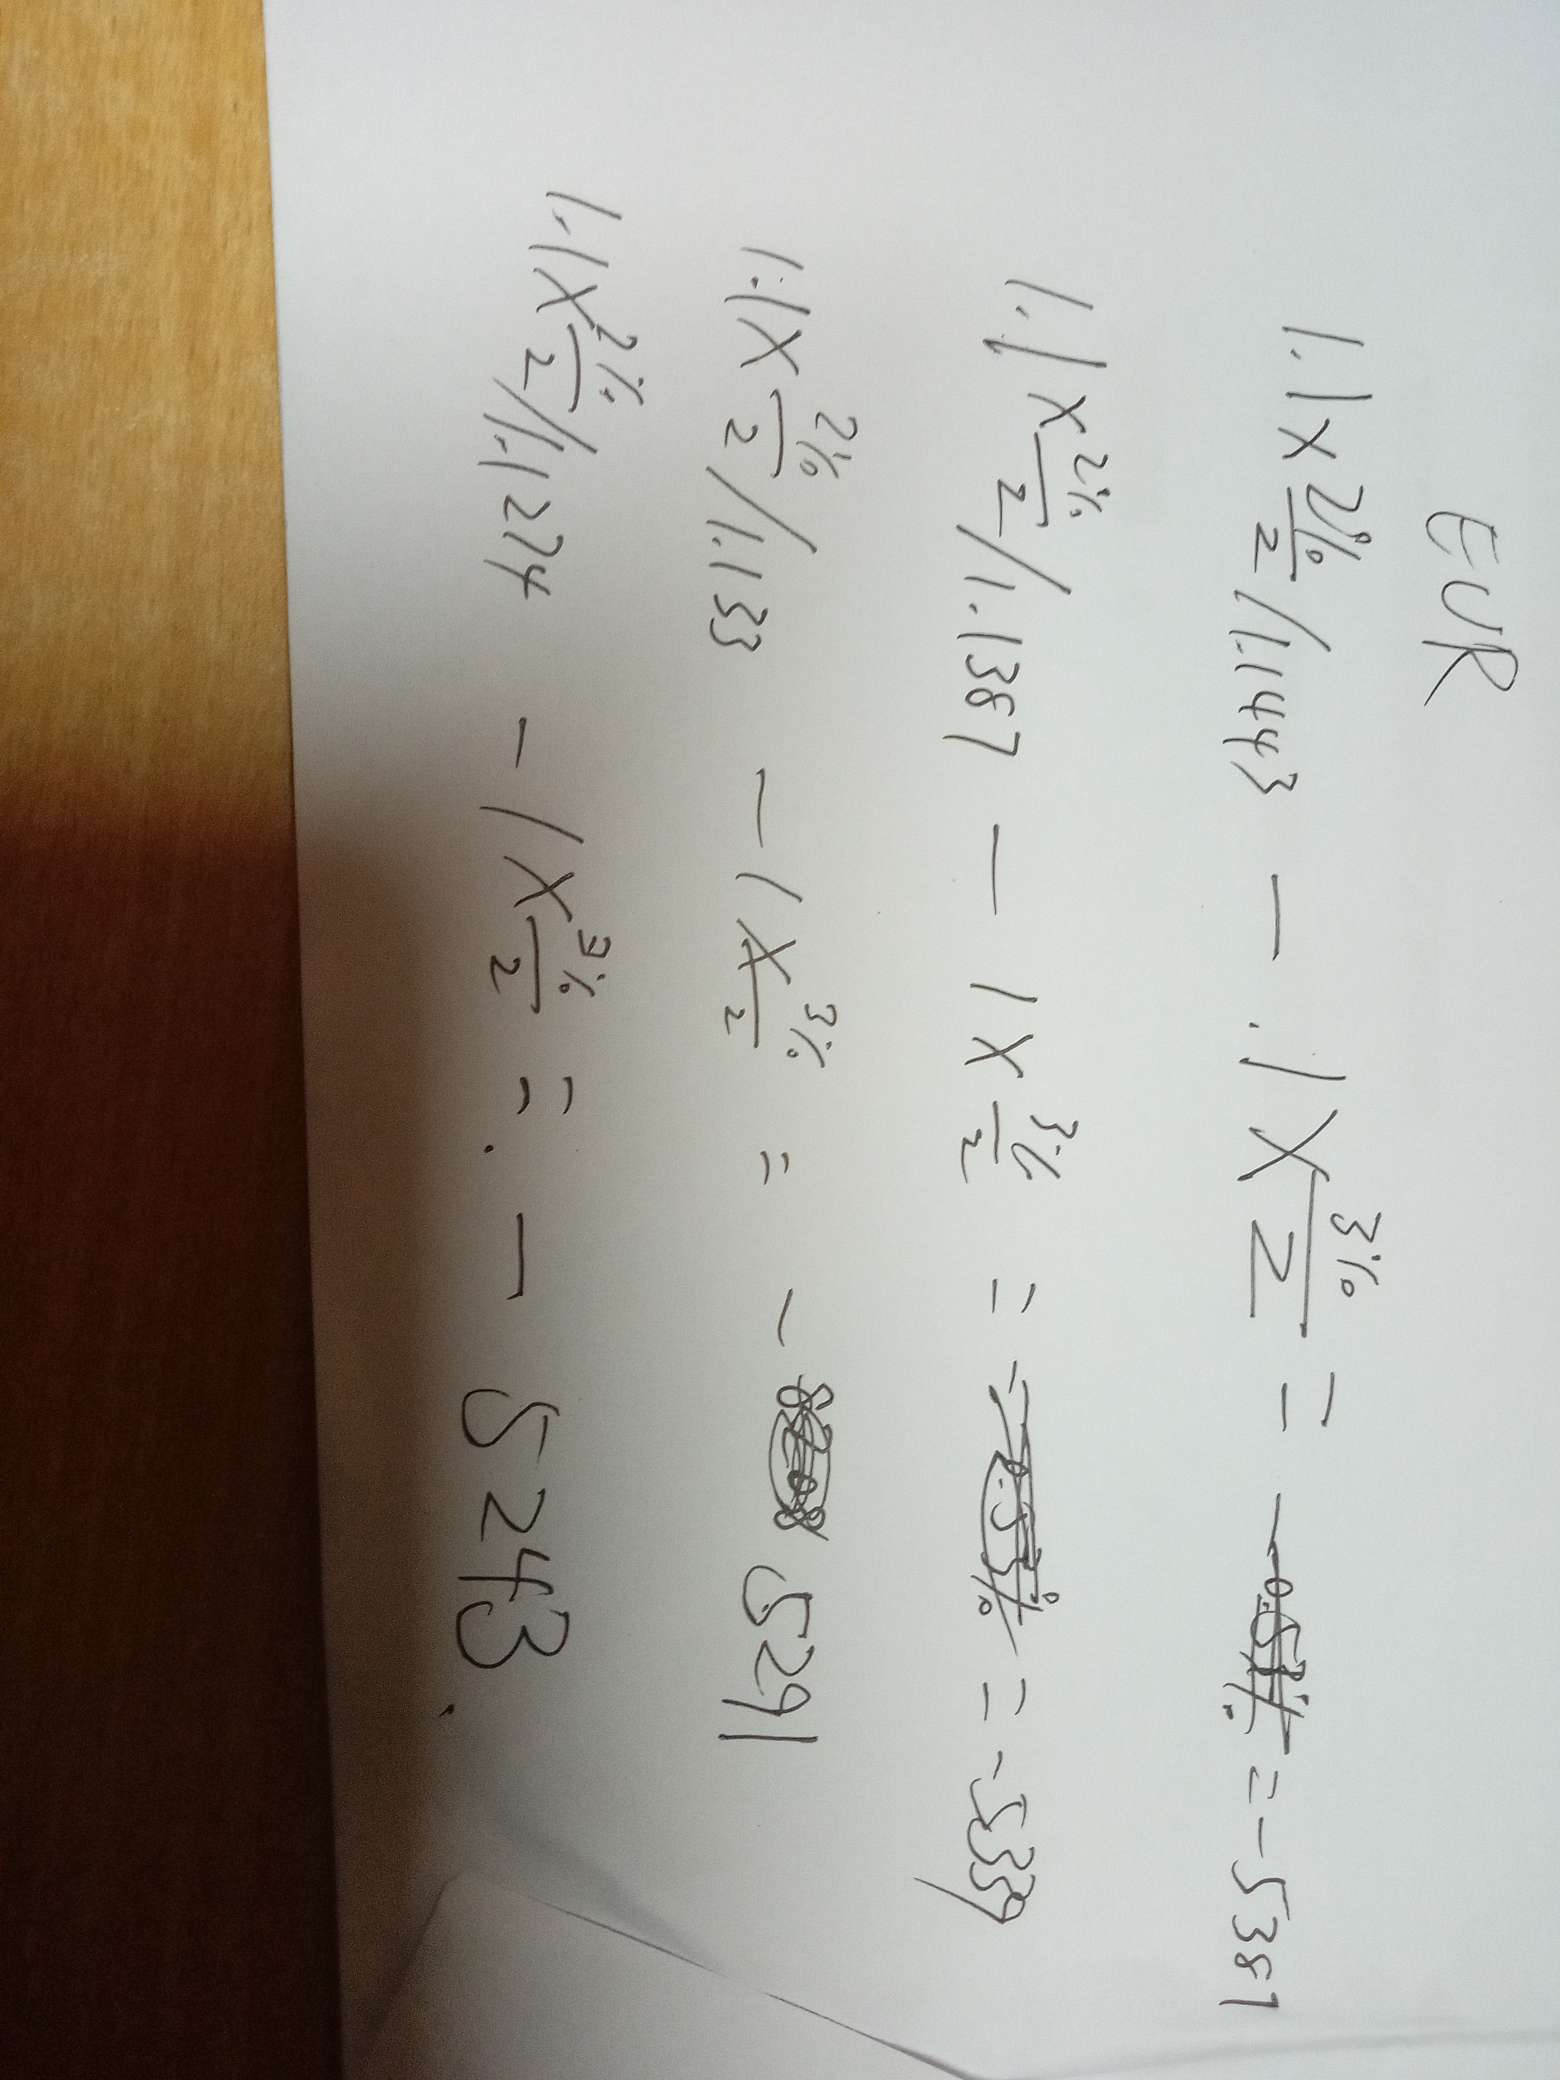 EUR
1.1 x 2%/2 / 1.1443 - 1 x 3%/2 = - = -5387
1.1 x 2%/2 / 1.1387 - 1 x 3%/2 = - = -5339
1.1 x 2%/2 / 1.133 - 1 x 3%/2 = - 5291
1.1 x 2%/2 / 1.1274 - 1 x 3%/2 = - 5243